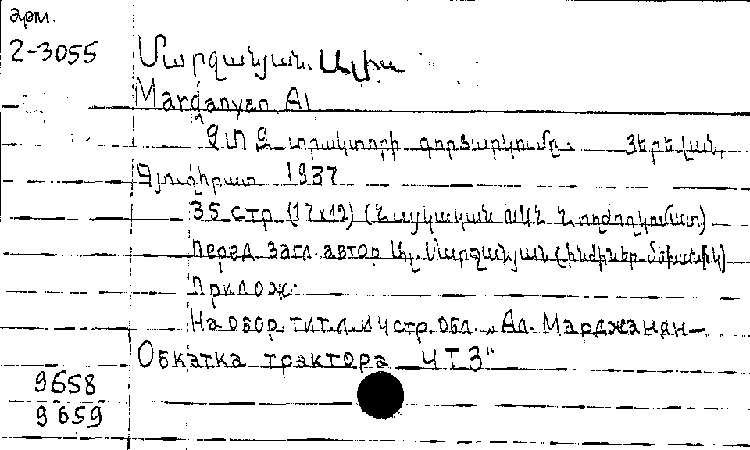 арм.
2-3055
Մարջանյան, Ալ.
Marganyan Al
ՉՏԶ տրակտորի գործարկումը. Յերևան,
Գյուղհրատ 1937
35 стр. (17x12) (Հայկական ՍՍՀ Հողժողկոմատ)
Перед загл. автор Ալ. Մարջանյան (ինժիներ-մեխանիկ)
Прилож:
На обор. тит. л. и 4 стр. обл. „Ал. Марджанян—
Обкатка трактора ЧТЗ"
9658
9659